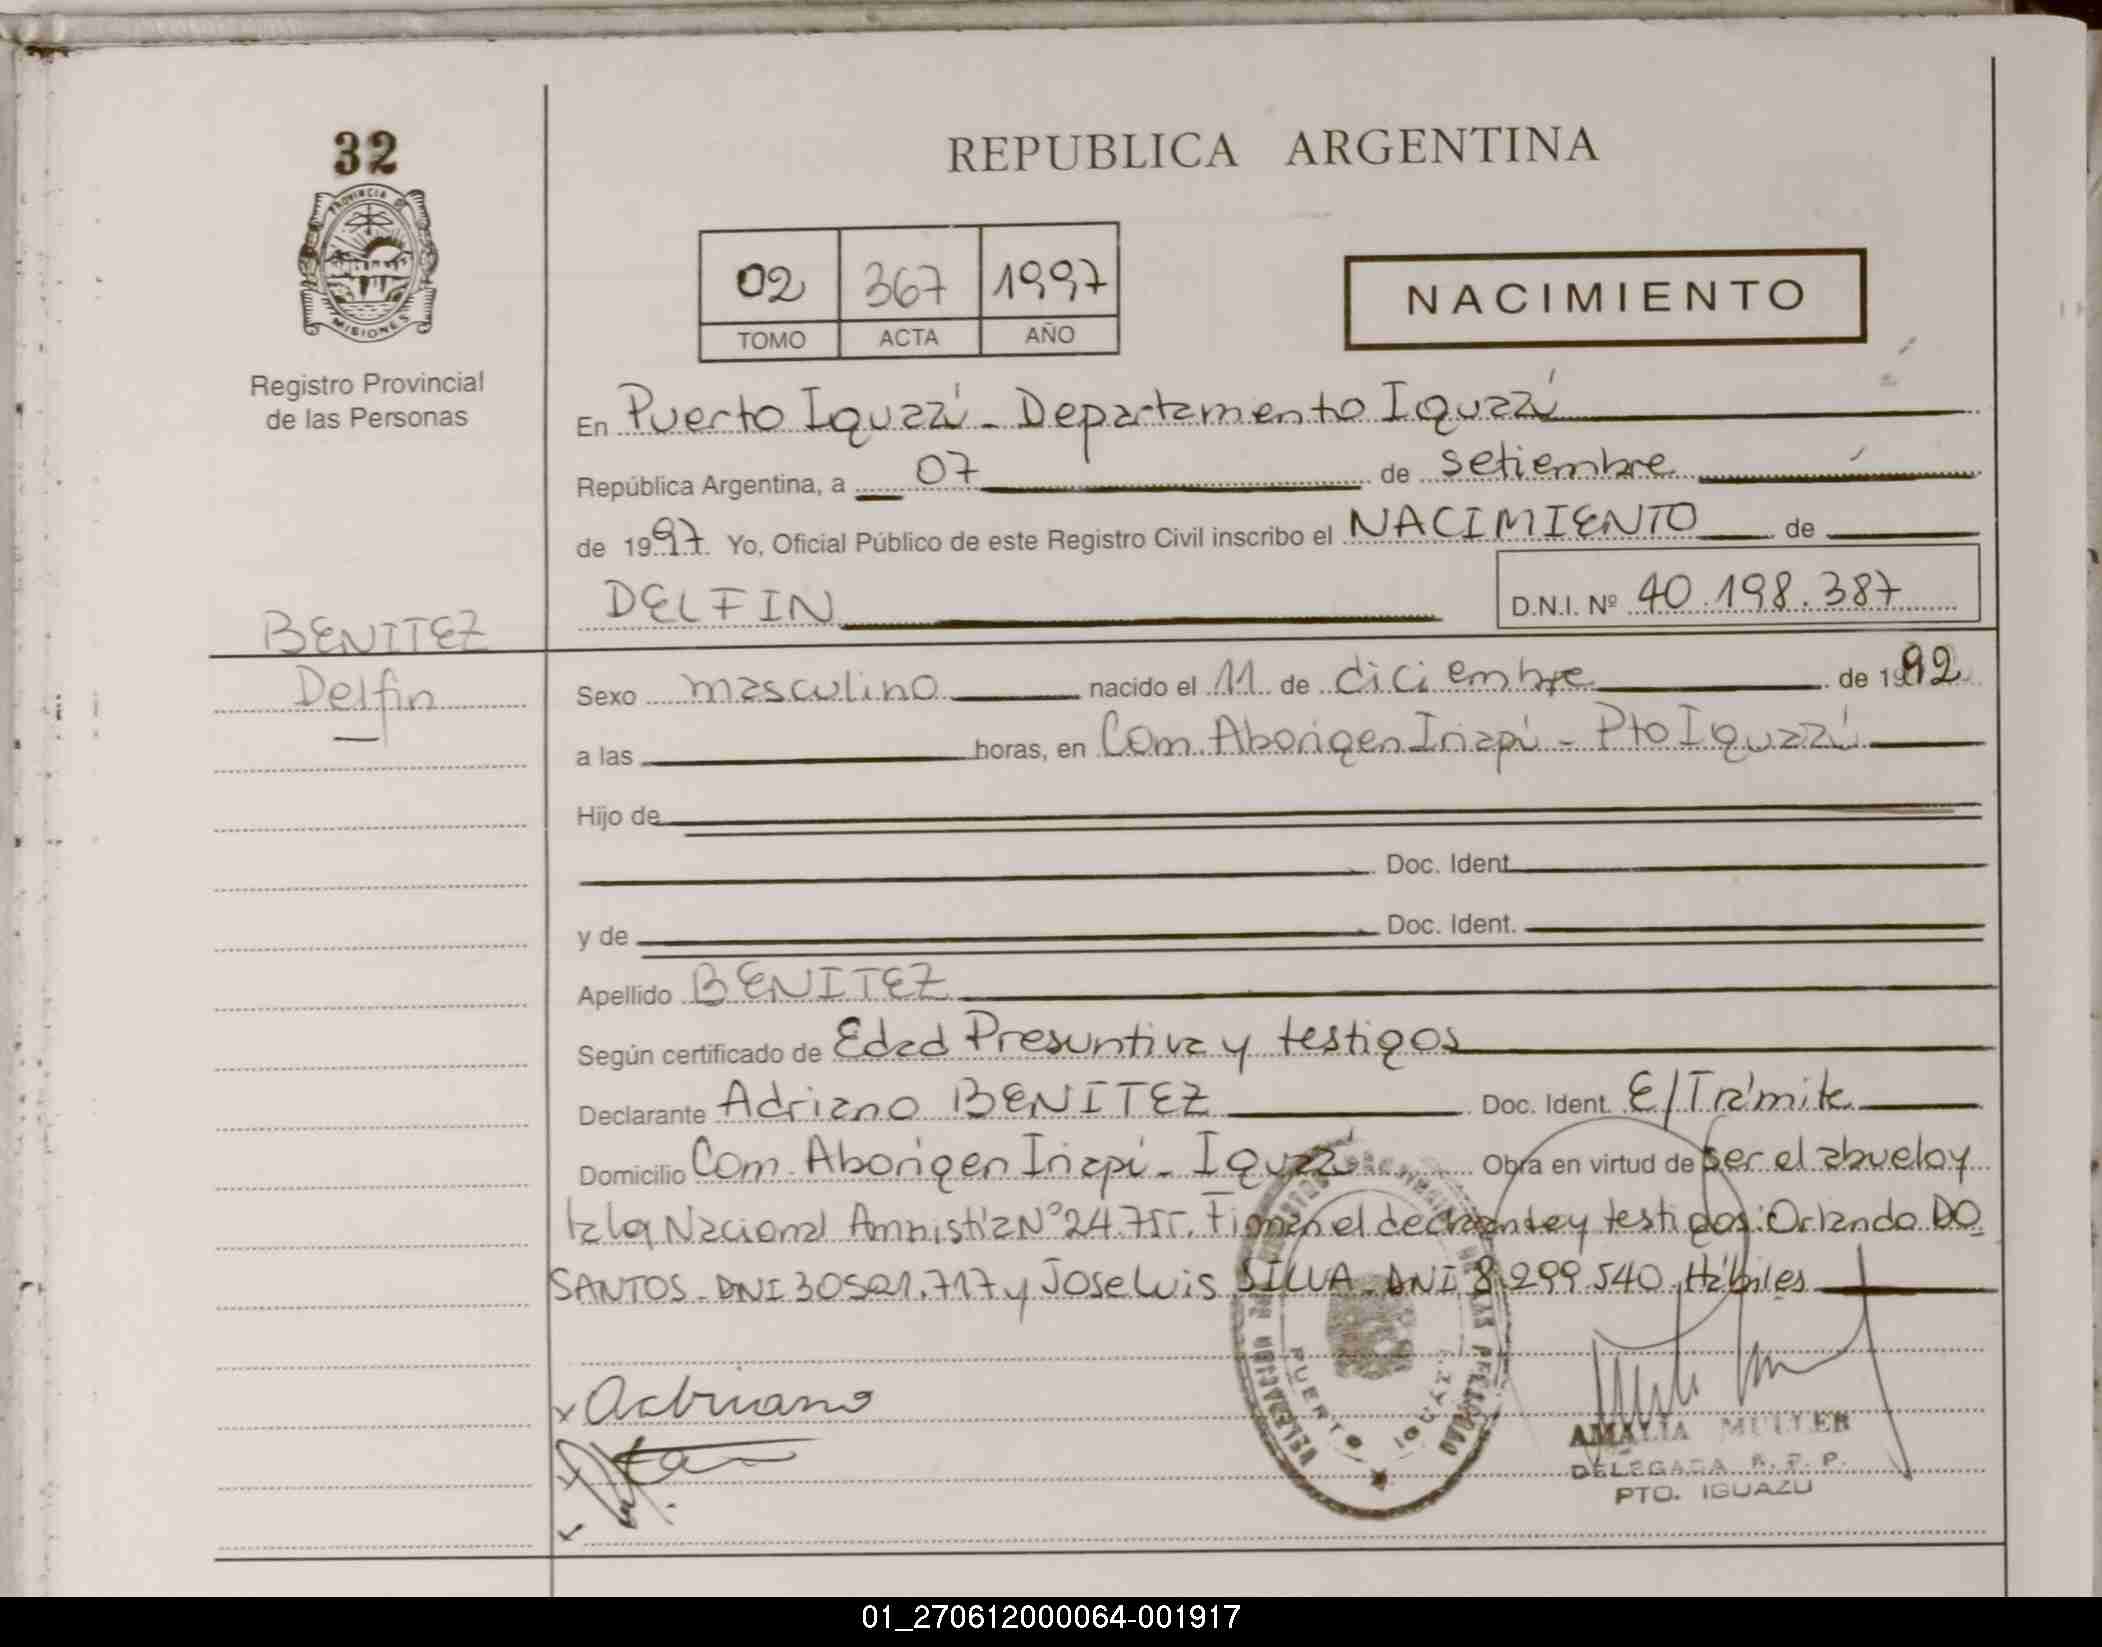 32
PROVINCIA DE
MISIONES
Registro Provincial
de las Personas
BENITEZ
Delfin
REPUBLICA ARGENTINA
02 367 1997
TOMO ACTA AÑO
NACIMIENTO
En Puerto Iguazú - Departamento Iguazú
República Argentina, a 07 de setiembre
de 1997 Yo, Oficial Público de este Registro Civil inscribo el NACIMIENTO de
DELFIN D.N.I. Nº 40.198.387
Sexo masculino nacido el 11 de diciembre de 1992
a las horas, en Com. Aborigen Iriapú - Pto Iguazú
Hijo de
Doc. Ident.
y de Doc. Ident.
Apellido BENITEZ
Según certificado de Edad Presuntiva y testigos
Declarante Adriano BENITEZ Doc. Ident. E/Trámite
Domicilio Com. Aborigen Iriapú - Iguazú Obra en virtud de ser el abuelo y
la Nacional Amnistía Nº 24.755. Firman el declarante y testigos: Orlando DO
SANTOS - DNI 30521.717 y Jose Luis SILVA - DNI 8.299.540 Hábiles
x Adriano
x
x
PUERTO IGUAZU
AMALIA MULLER
DELEGADA R. P. P.
PTO. IGUAZU
01_270612000064-001917